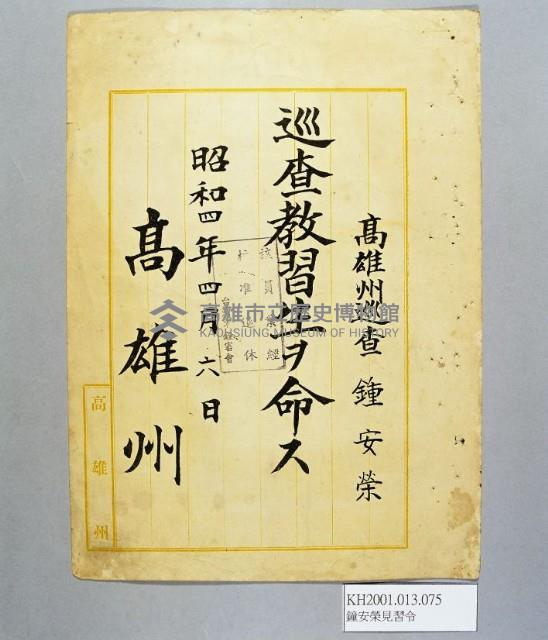 高雄州巡查 鍾安榮
巡查教習生ヲ命ス
昭和四年四月六日
高雄州
高雄州
該員業經
准退休
高雄市立歷史博物館
KAOHSIUNG MUSEUM OF HISTORY
KH2001.013.075
鐘安榮見習令